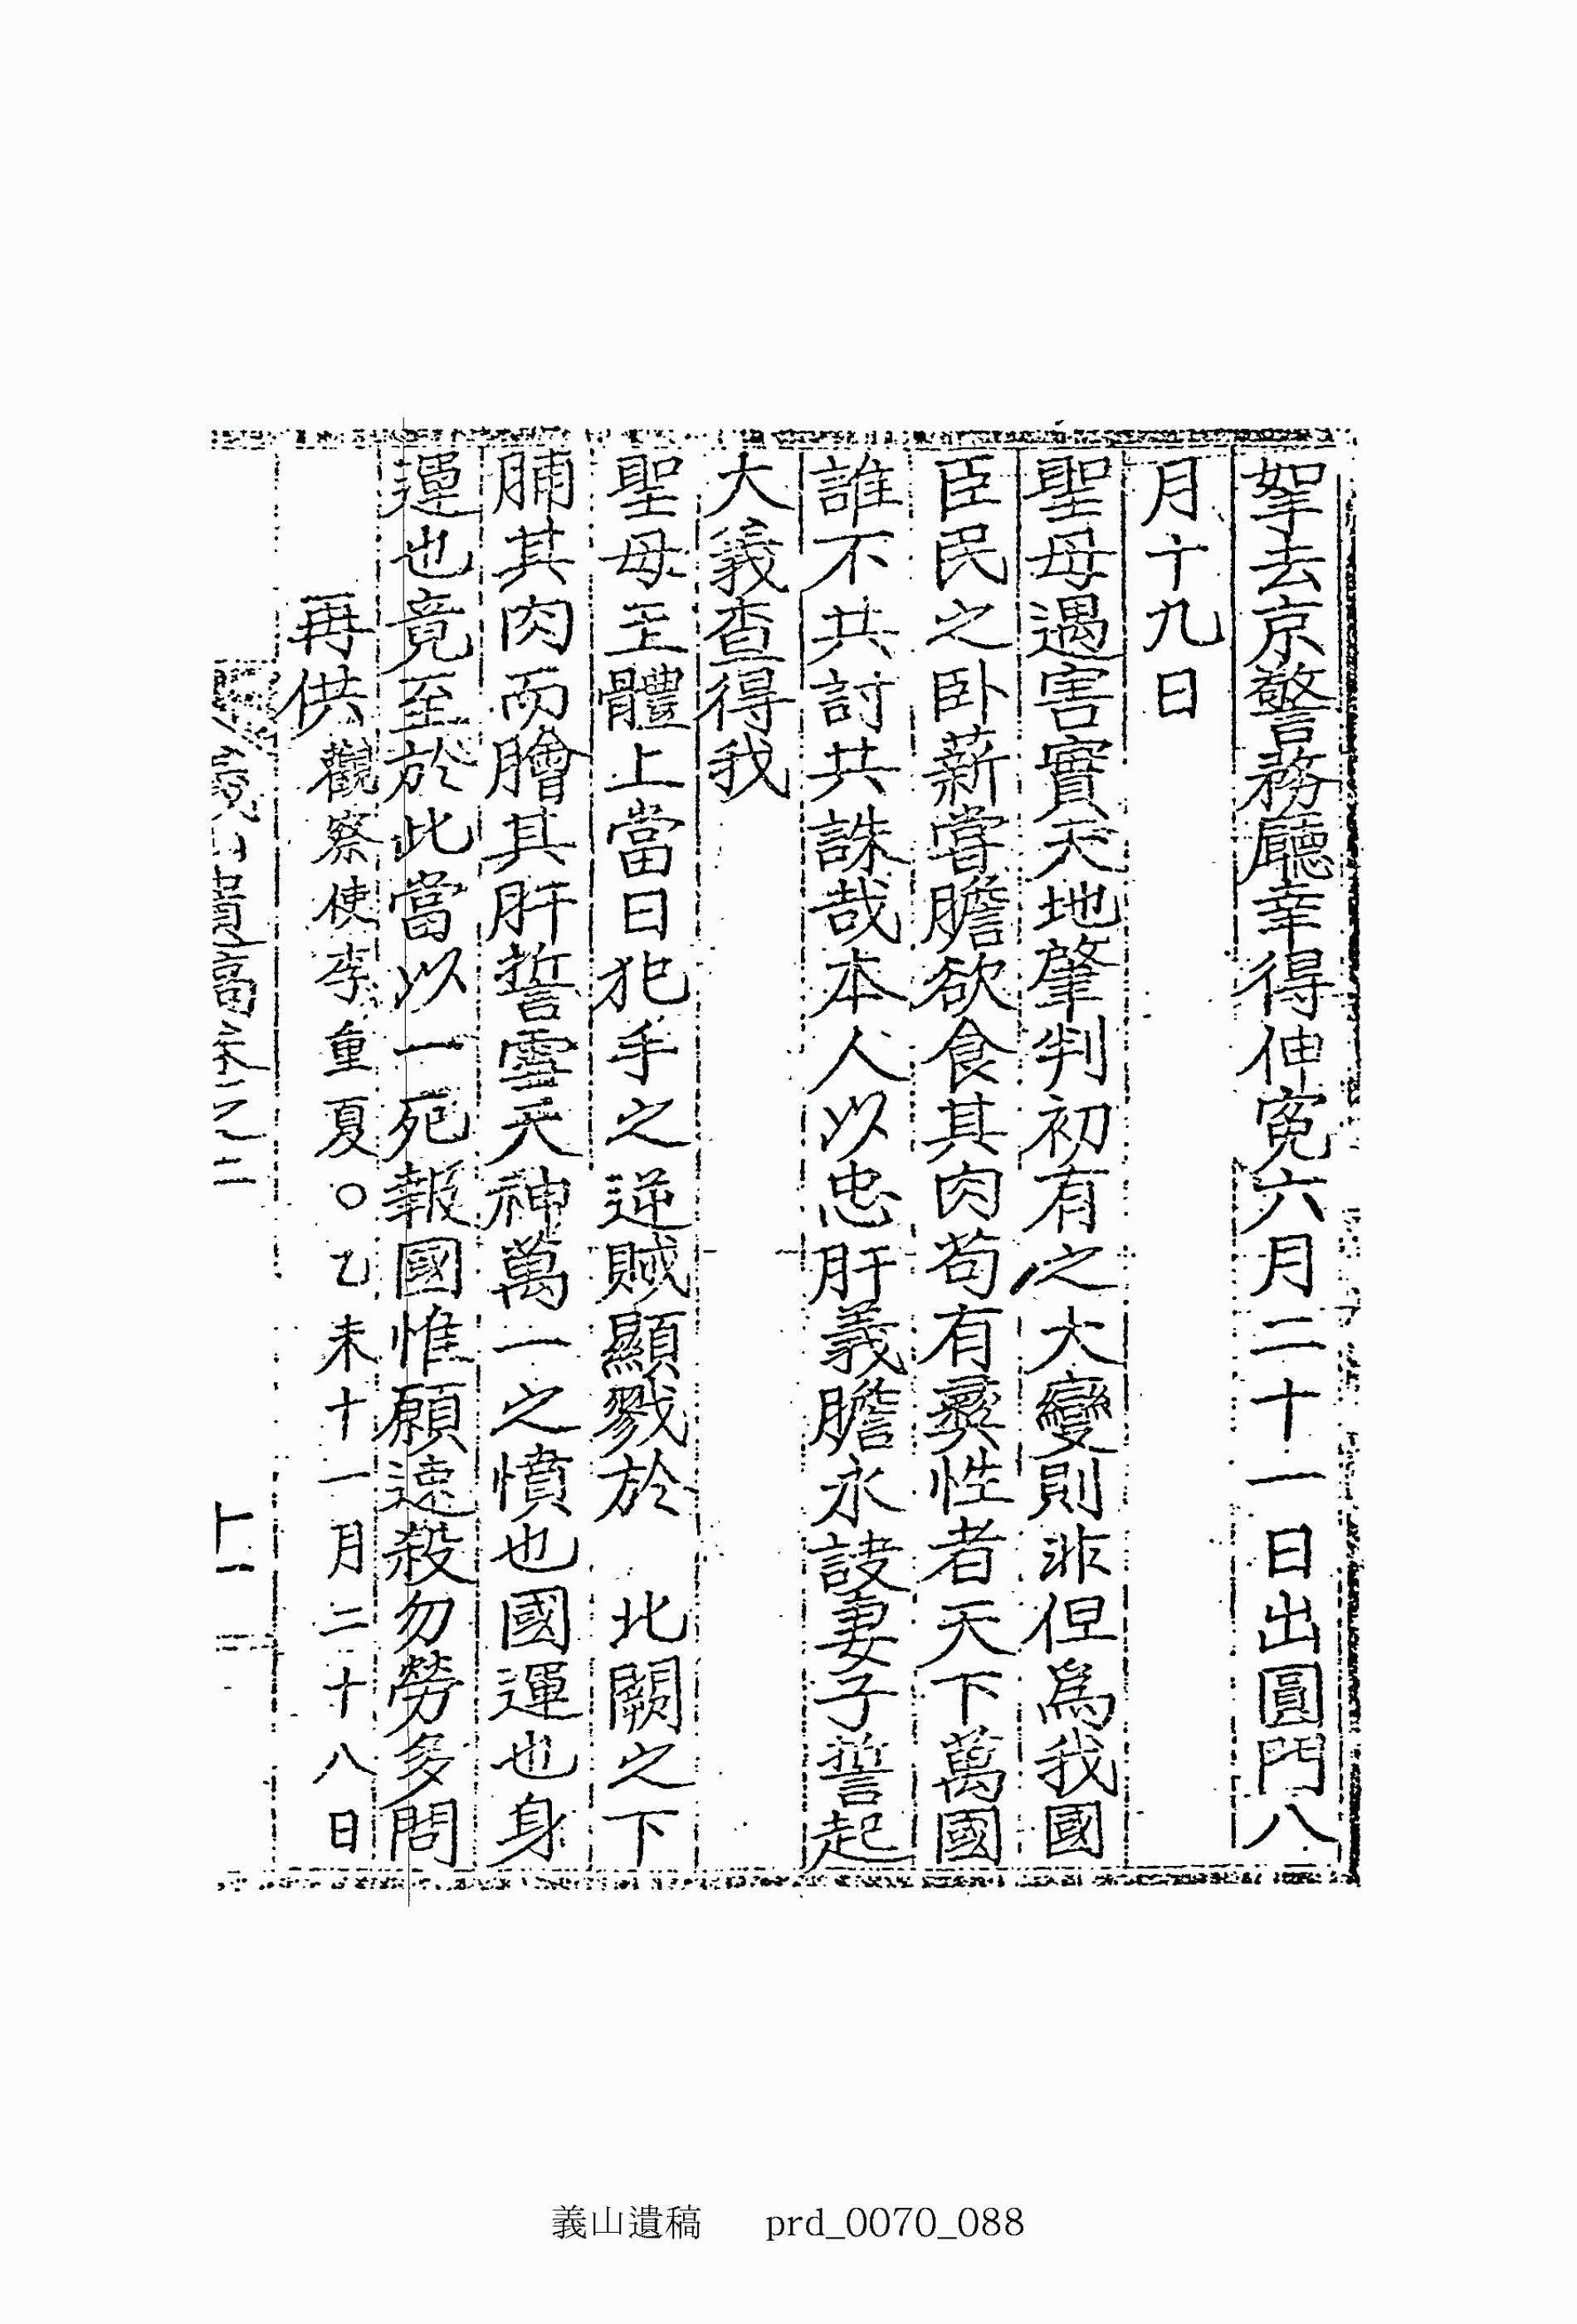 挐去京警務廳幸得伸寃六月二十一日出圓門八
月十九日
聖母遇害實天地肇判初有之大變則非但爲我國
臣民之卧薪嘗膽欲食其肉苟有彛性者天下萬國
誰不共討共誅哉本人以忠肝義膽永訣妻子誓起
大義查得我
聖母玉體上當日犯手之逆賊顯戮於 北闕之下
脯其肉而膾其肝誓雪天神萬一之憤也國運也身
運也竟至於此當以一死報國惟願速殺勿勞多問
再供觀察使李重夏○乙未十一月二十八日
義山遺稿卷之二
十二
義山遺稿 prd_0070_088